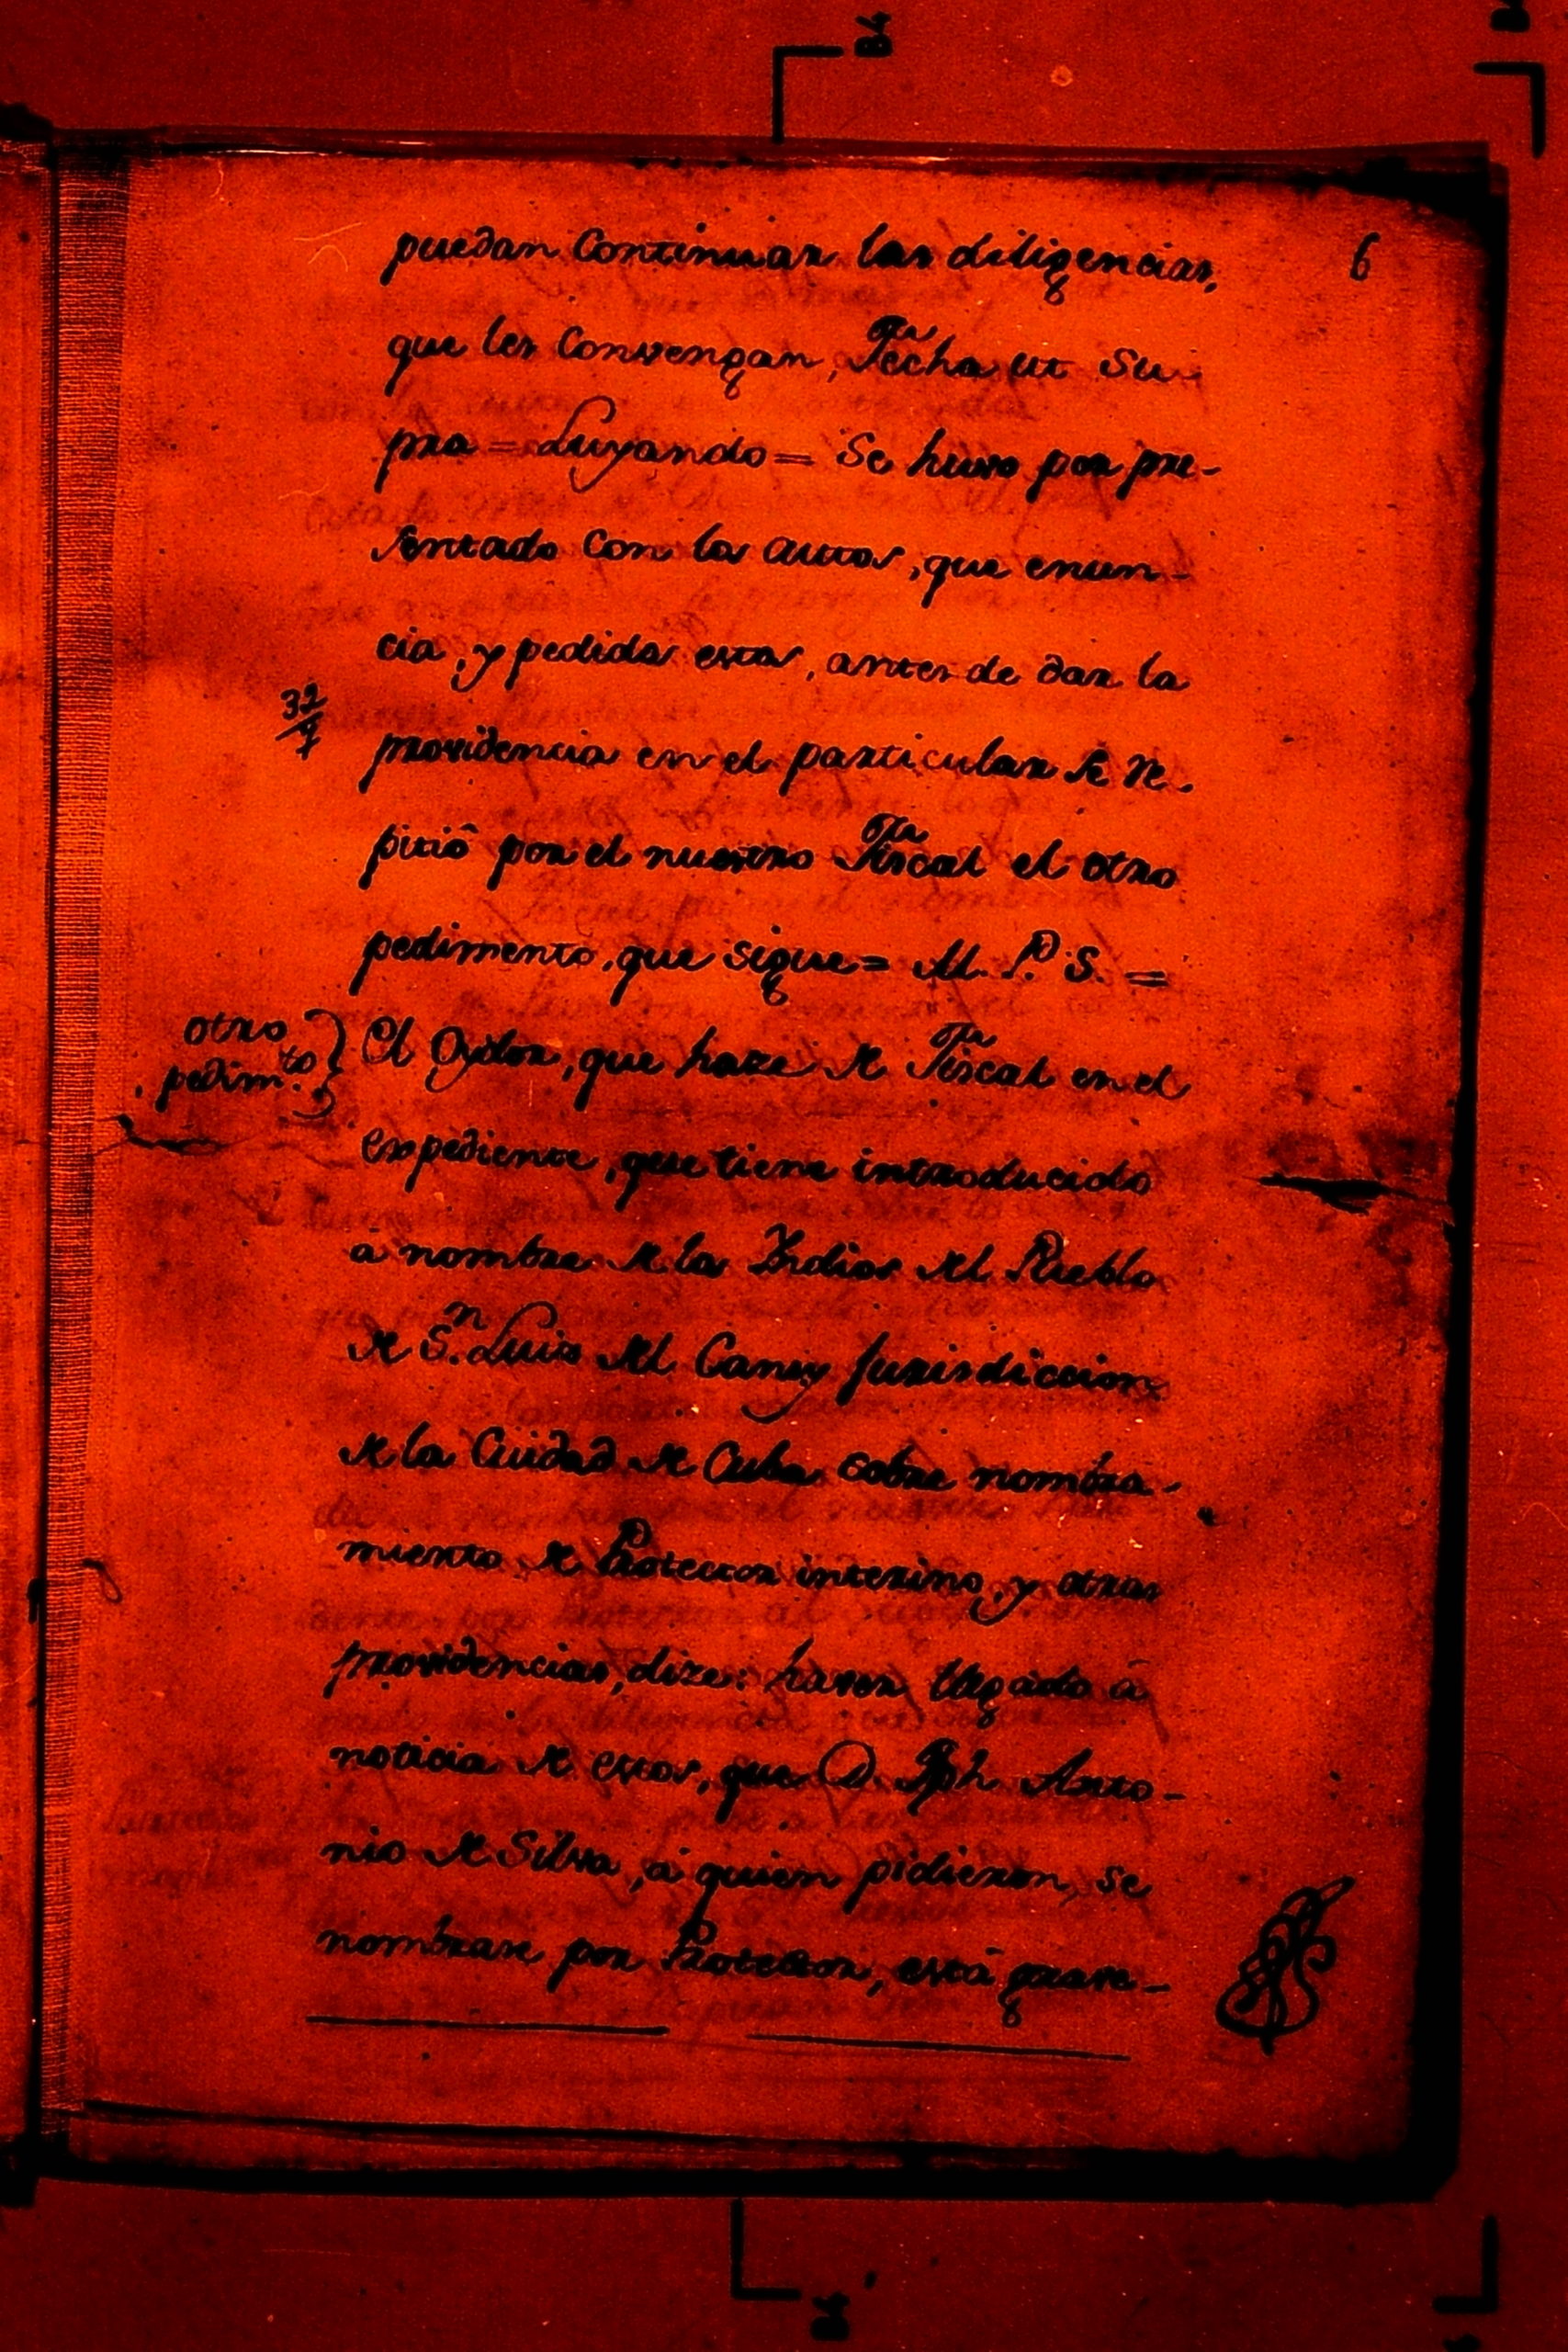 6
puedan Continuar las diligencias,
que les Convengan, Fecha ut Su-
pra = Luyando = Se huvo por pre-
sentado con los autos, que enun-
cia, y pedidos estos, antes de dar la
32
providencia en el particular se re-
pitió por el nuestro Fiscal el otro
pedimento, que sigue = M. P. S. =
otro
pedim.to
El Oydor, que haze de Fiscal en el
expediente, que tiene introducido
à nombre de los Indios del Pueblo
de S.n Luis del Caney Jurisdiccion
de la Ciudad de Cuba sobre nombra-
miento de Protector interino, y otras
providencias, dize: haver llegado à
noticia de estos, que D. Jph Anto-
nio de Silva, à quien pidieron, se
nombrase por Protector, està grave-